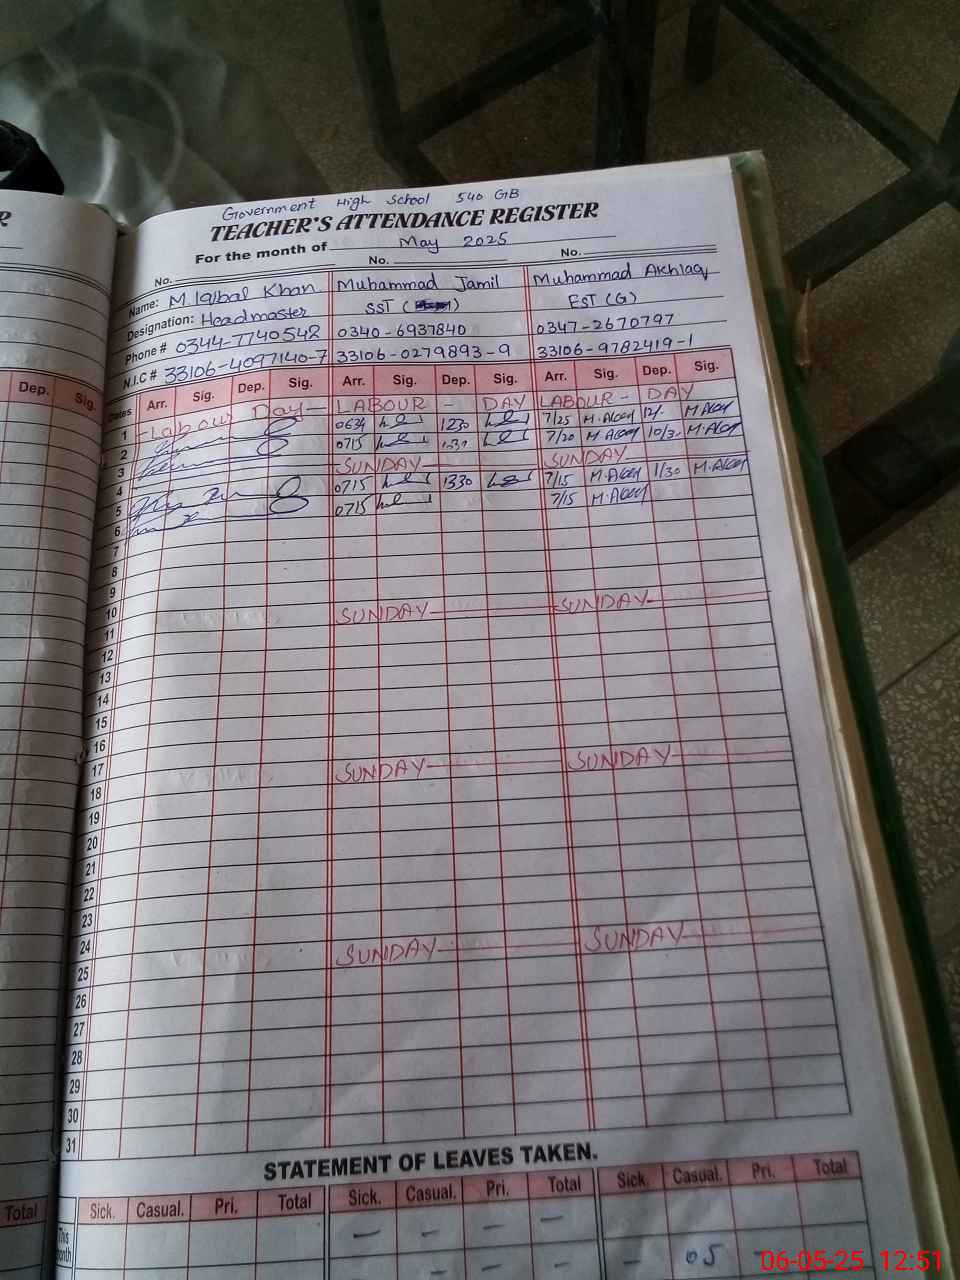 Government High School 540 GB
R TEACHER'S ATTENDANCE REGISTER
For the month of May 2025
No. No. No.
Name: M. Iqbal Khan Muhammad Jamil Muhammad Akhlaq
Designation: Headmaster SST ( ) EST (G)
Phone # 0344-7740542 0340-6937840 0347-2670797
N.I.C # 33106-4097140-7 33106-0279893-9 33106-9782419-1
Dep. Sig. Dates Arr. Sig. Dep. Sig. Arr. Sig. Dep. Sig. Arr. Sig. Dep. Sig.
1 Labour Day LABOUR - DAY LABOUR - DAY
2 0634 1230 7/25 M. 12/- M.
3 0715 7/20 M. 10/3 M.
4 SUNDAY SUNDAY
5 0715 1330 7/15 M. 1/30 M.
6 0715 7/15 M.
7
8
9
10
11 SUNDAY SUNDAY
12
13
14
15
16
17
18 SUNDAY SUNDAY
19
20
21
22
23
24
25 SUNDAY SUNDAY
26
27
28
29
30
31
STATEMENT OF LEAVES TAKEN.
Total Sick. Casual. Pri. Total Sick. Casual. Pri. Total Sick. Casual. Pri. Total
This month — — — —
— — — 05
06-05-25 12:51